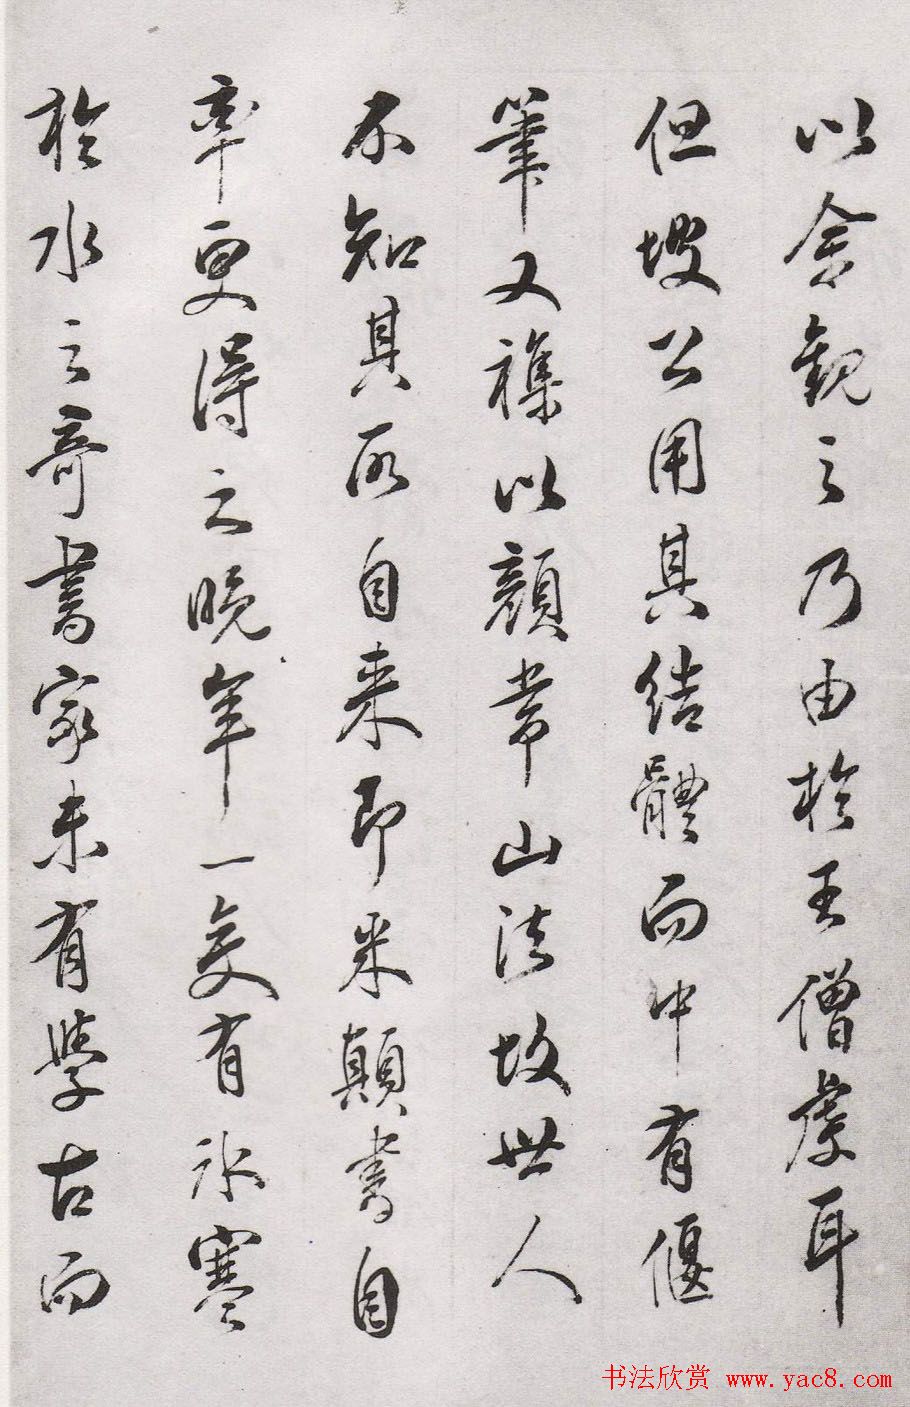 以余觀之乃由於王僧虔耳
但坡公用其結體而中有偃
筆又襍以顏常山法故世人
不知其所自来即米顛書自
率更得之晚年一变有冰寒
於水之奇書家未有學古而
书法欣赏 www.yac8.com